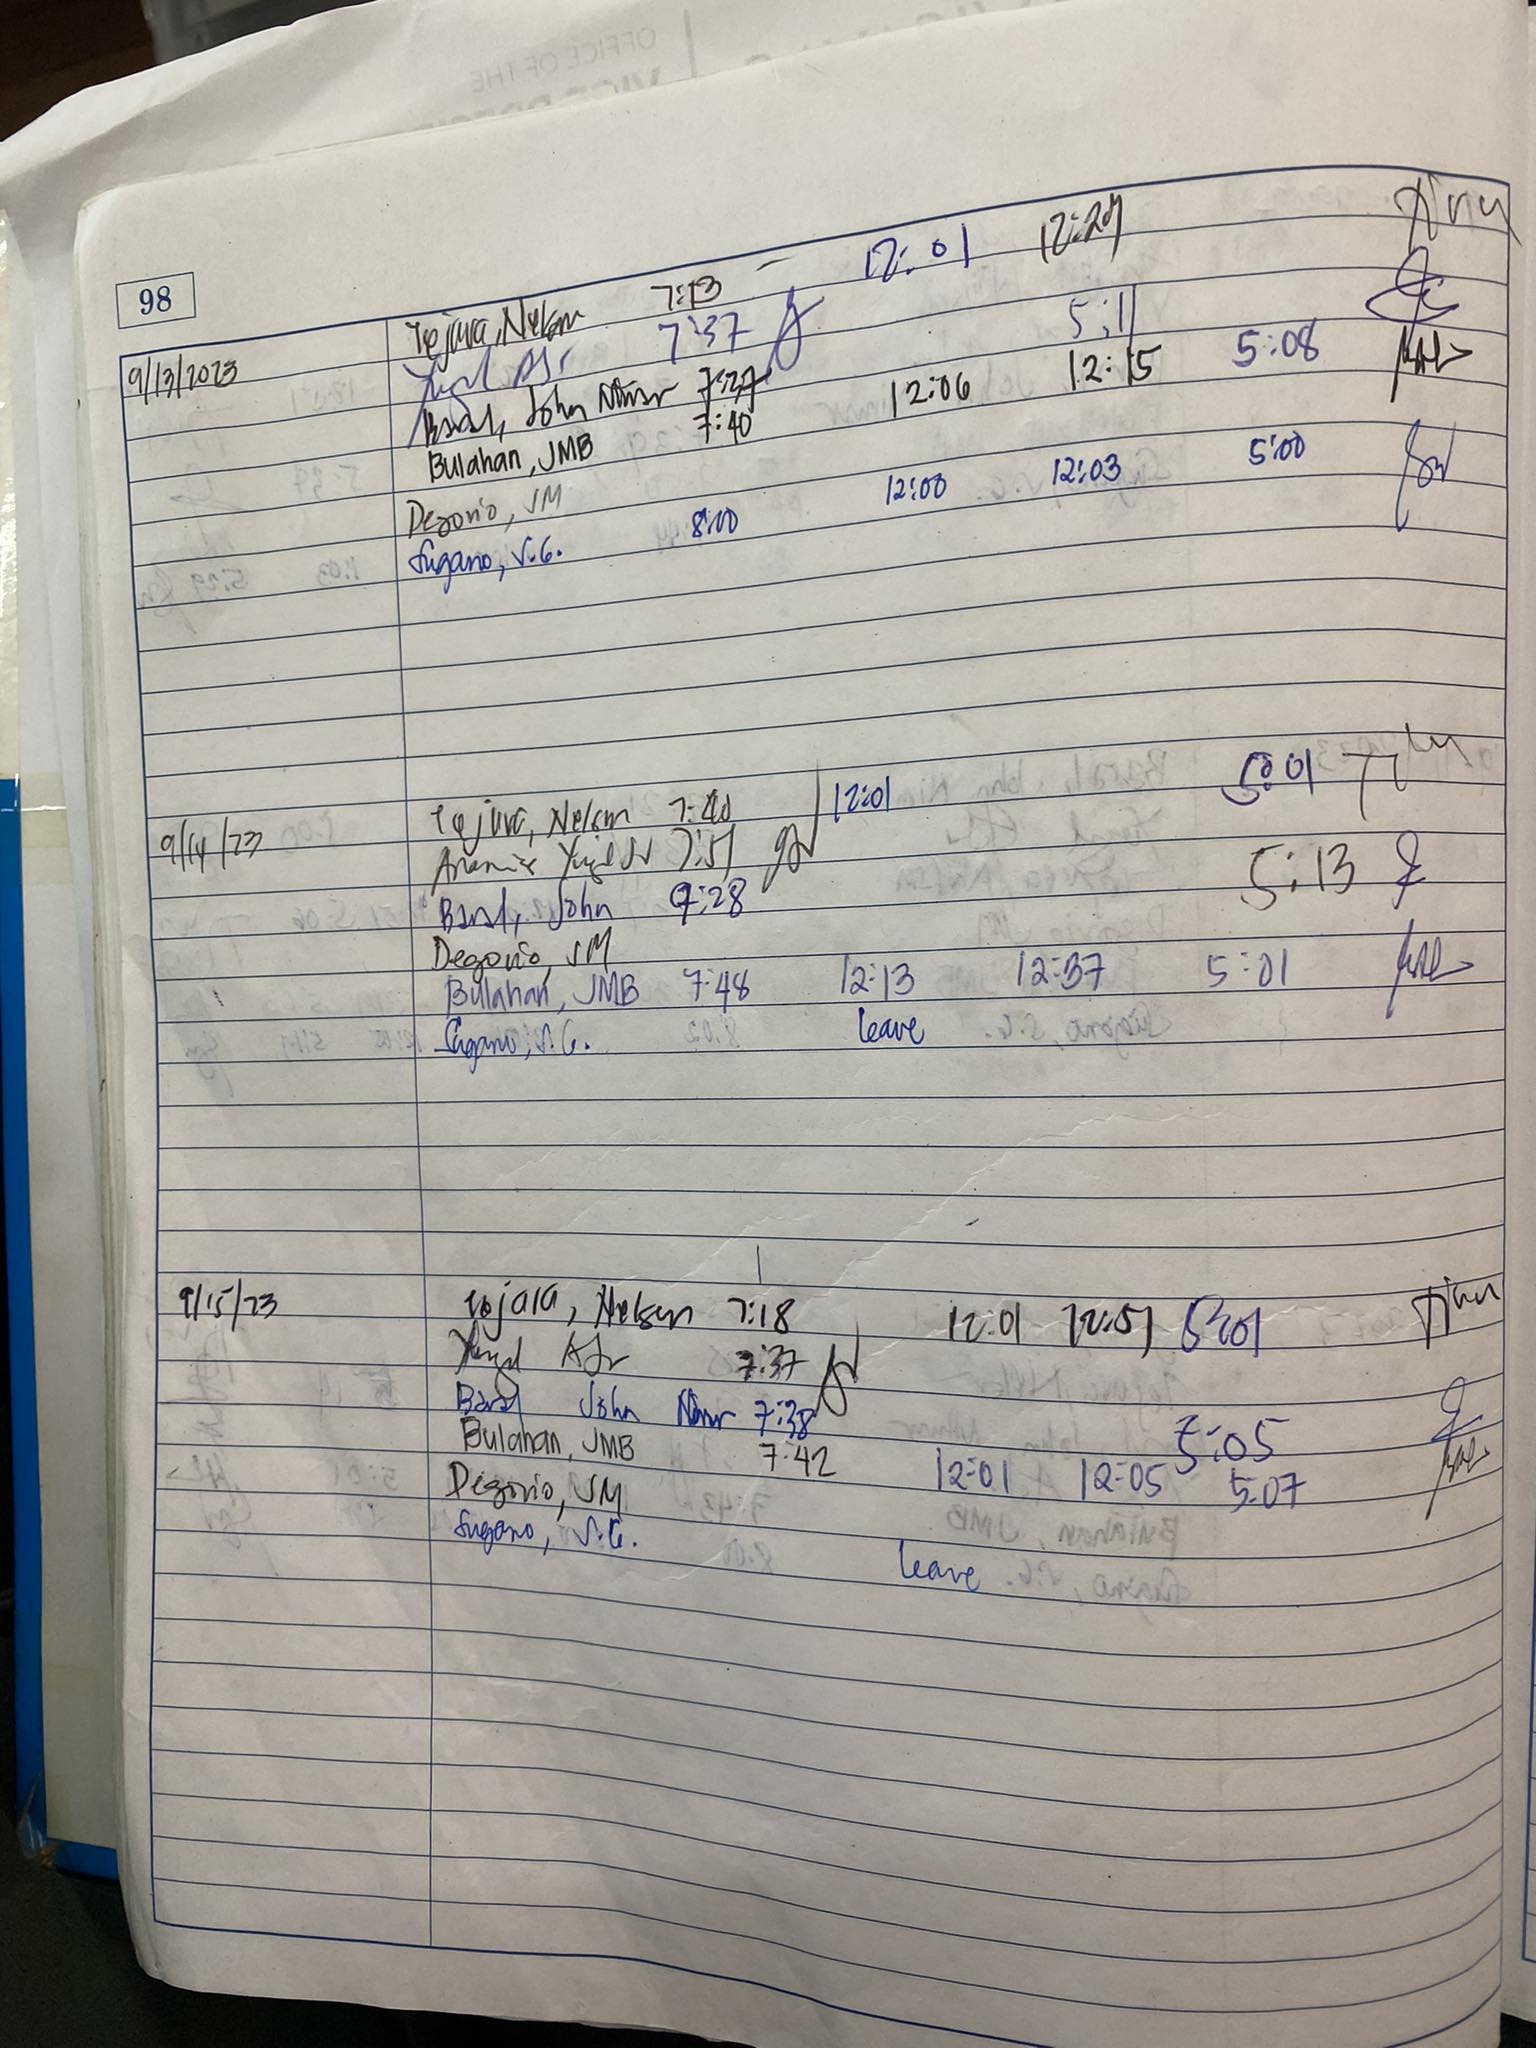 OFFICE OF THE
98
9/13/2023 Tejura, Nelson 7:13 – 12:01 12:27
7:37 5:11
Baral, John Nimor 7:37
Bulahan, JMB 7:40 12:06 12:15 5:08
Degorio, JM
Sugano, S.G. 8:00 12:00 12:03 5:00
9/14/23 Tejura, Nelson 7:20 12:01 5:01
Yugel Jr 7:51 5:13
Baral, John 7:28
Degorio, JM
Bulahan, JMB 7:48 12:13 12:37 5:01
Sugano, S.G. leave
9/15/23 Tejara, Nelson 7:18 12:01 12:51 5:01
Yugel AJr 7:37
Baral John Nimor 7:38 5:05
Bulahan, JMB 7:42 12:01 12:05 5:07
Degorio, JM
Sugano, S.G. leave